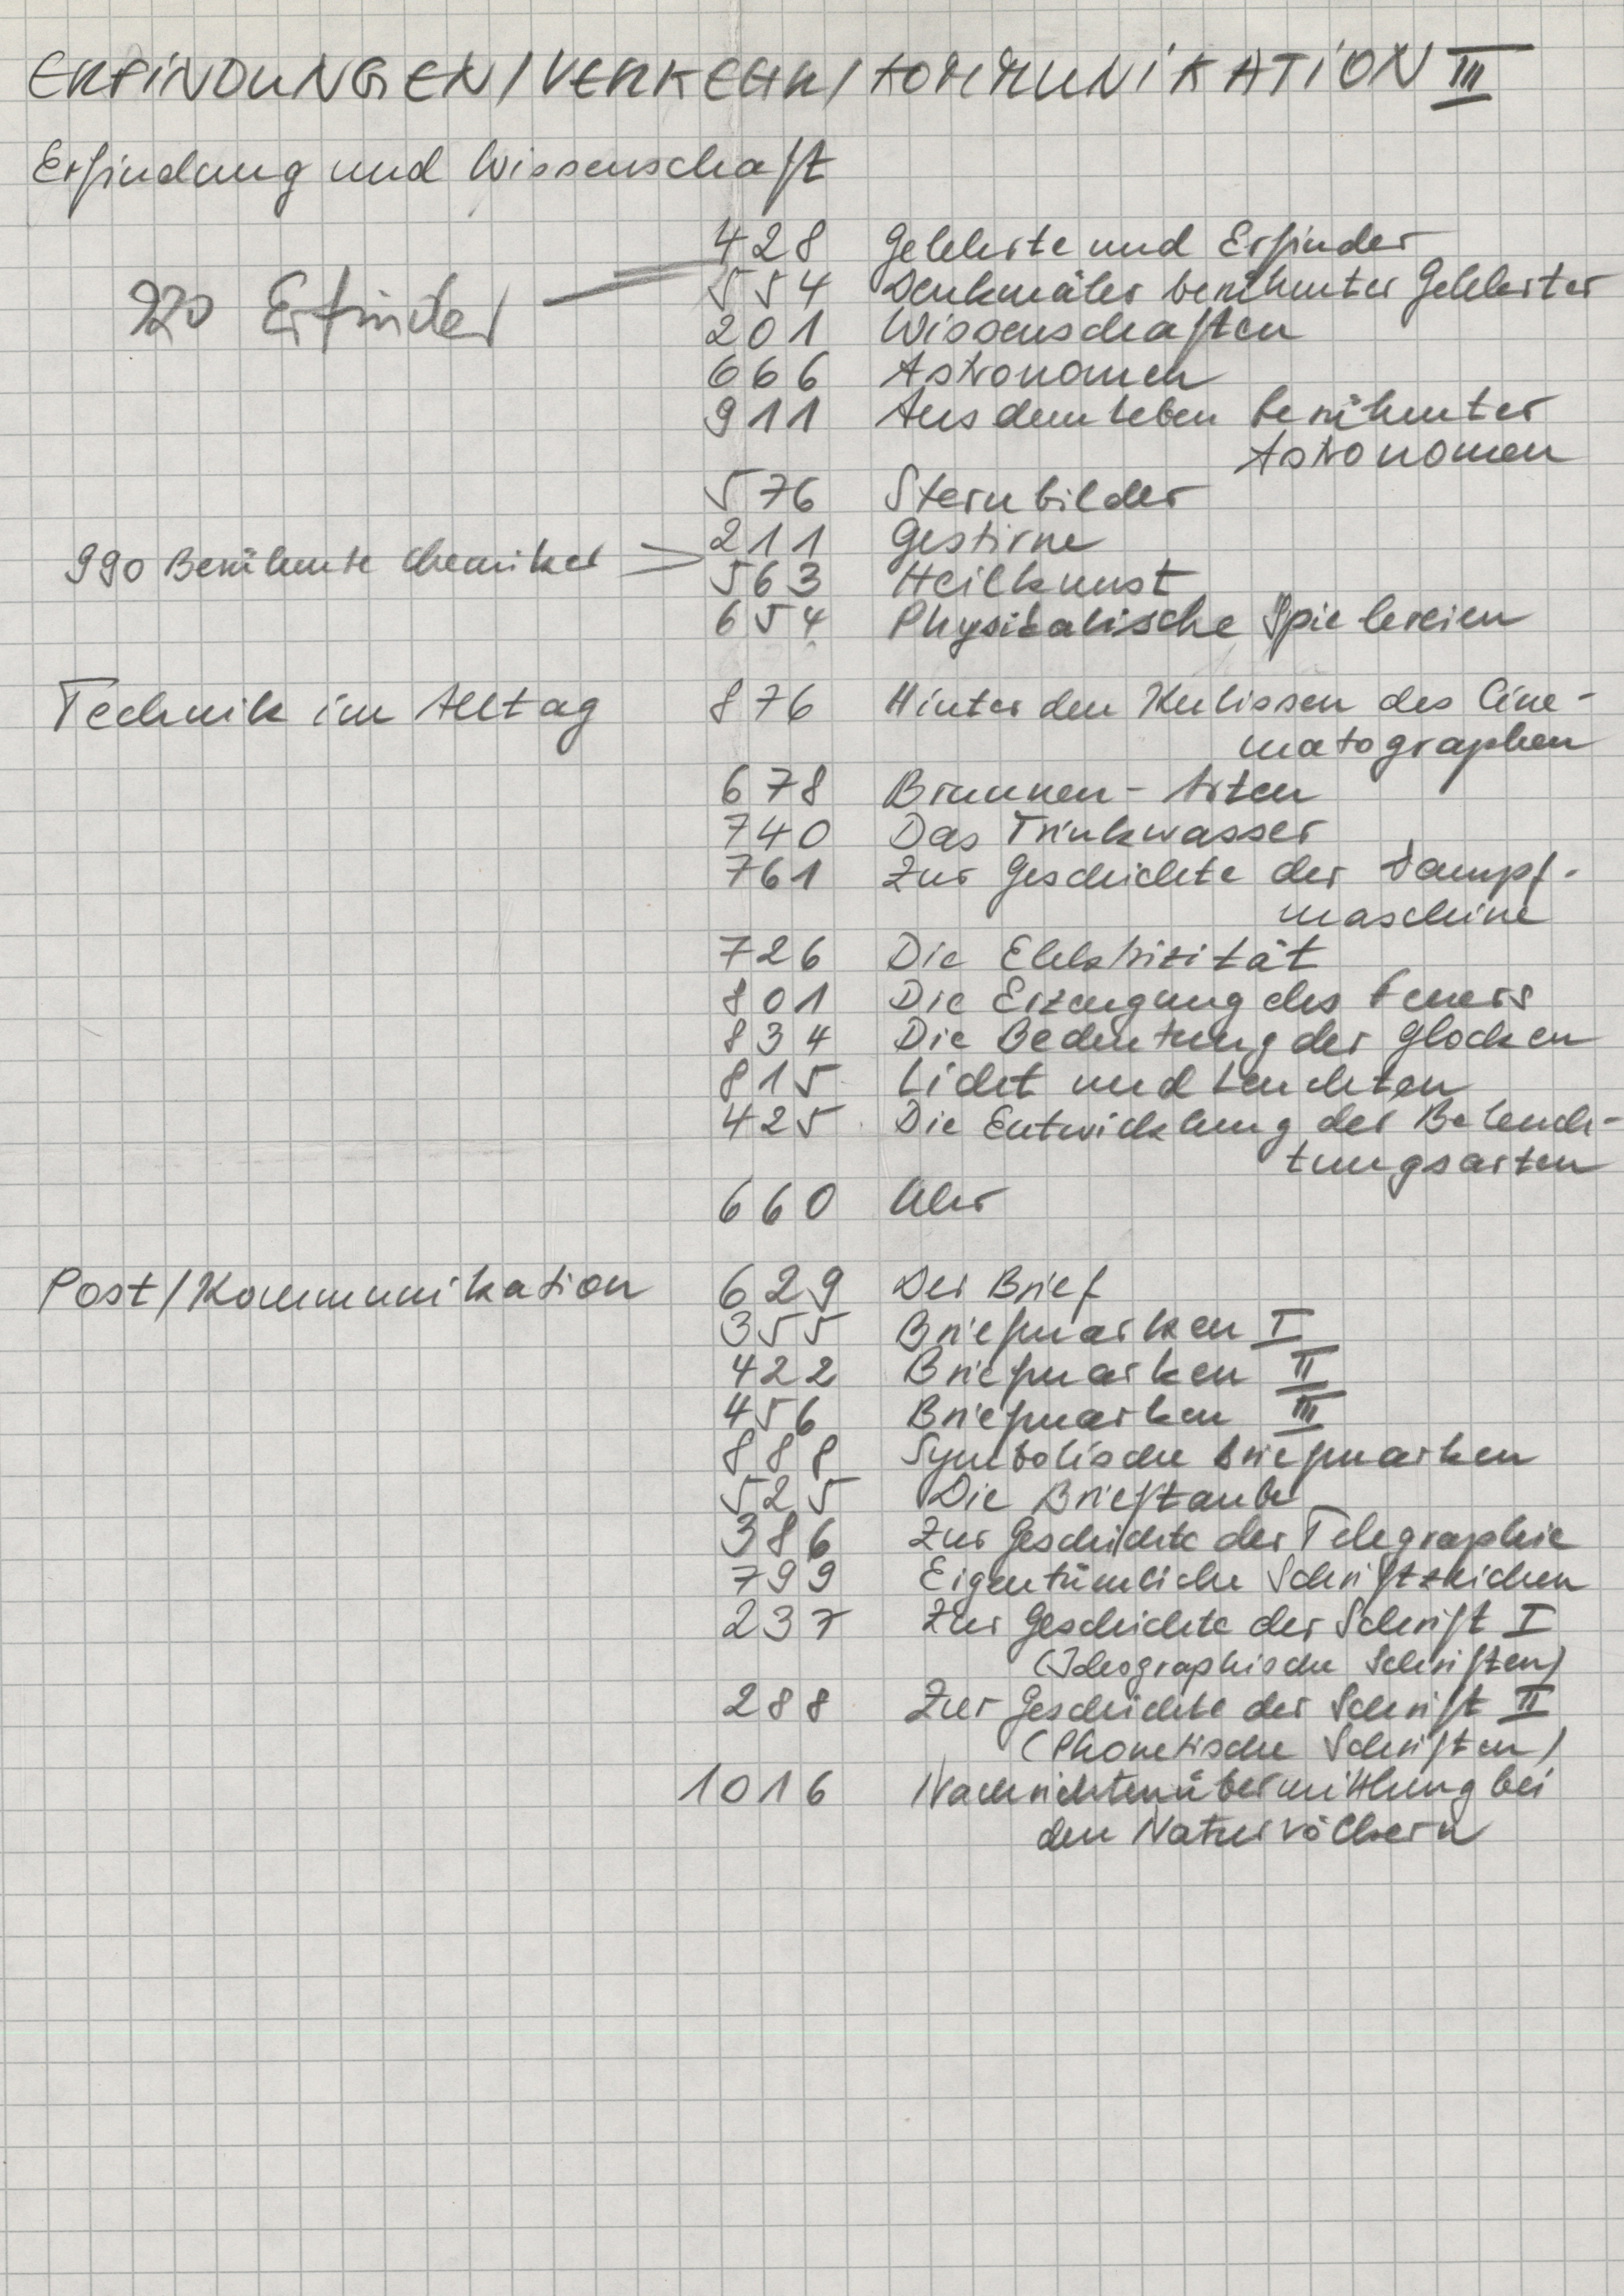 ERFINDUNGEN/VERKEHR/KOMMUNIKATION III
Erfindung und Wissenschaft
428 Gelehrte und Erfinder
220 Erfinder
554 Denkmäler berühmter Gelehrter
201 Wissenschaften
666 Astronomen
911 Aus dem Leben berühmter
Astronomen
576 Sternbilder
211 Gestirne
990 Berühmte Chemiker
563 Heilkunst
654 Physikalische Spielereien
Technik im Alltag 876 Hinter den Kulissen des Cine-
matographen
678 Brunnen-Arten
740 Das Trinkwasser
761 Zur Geschichte der Dampf-
maschine
726 Die Elektrizität
801 Die Erzeugung des Feuers
834 Die Bedeutung der Glocken
815 Licht und Leuchten
425 Die Entwicklung der Beleuch-
tungsarten
660 Uhr
Post/Kommunikation 629 Der Brief
355 Briefmarken I
422 Briefmarken II
456 Briefmarken III
888 Symbolische Briefmarken
525 Die Brieftaube
386 Zur Geschichte der Telegraphie
799 Eigentümliche Schriftzeichen
237 Zur Geschichte der Schrift I
(Ideographische Schriften)
288 Zur Geschichte der Schrift II
(Phonetische Schriften)
1016 Nachrichtenübermittlung bei
den Naturvölkern